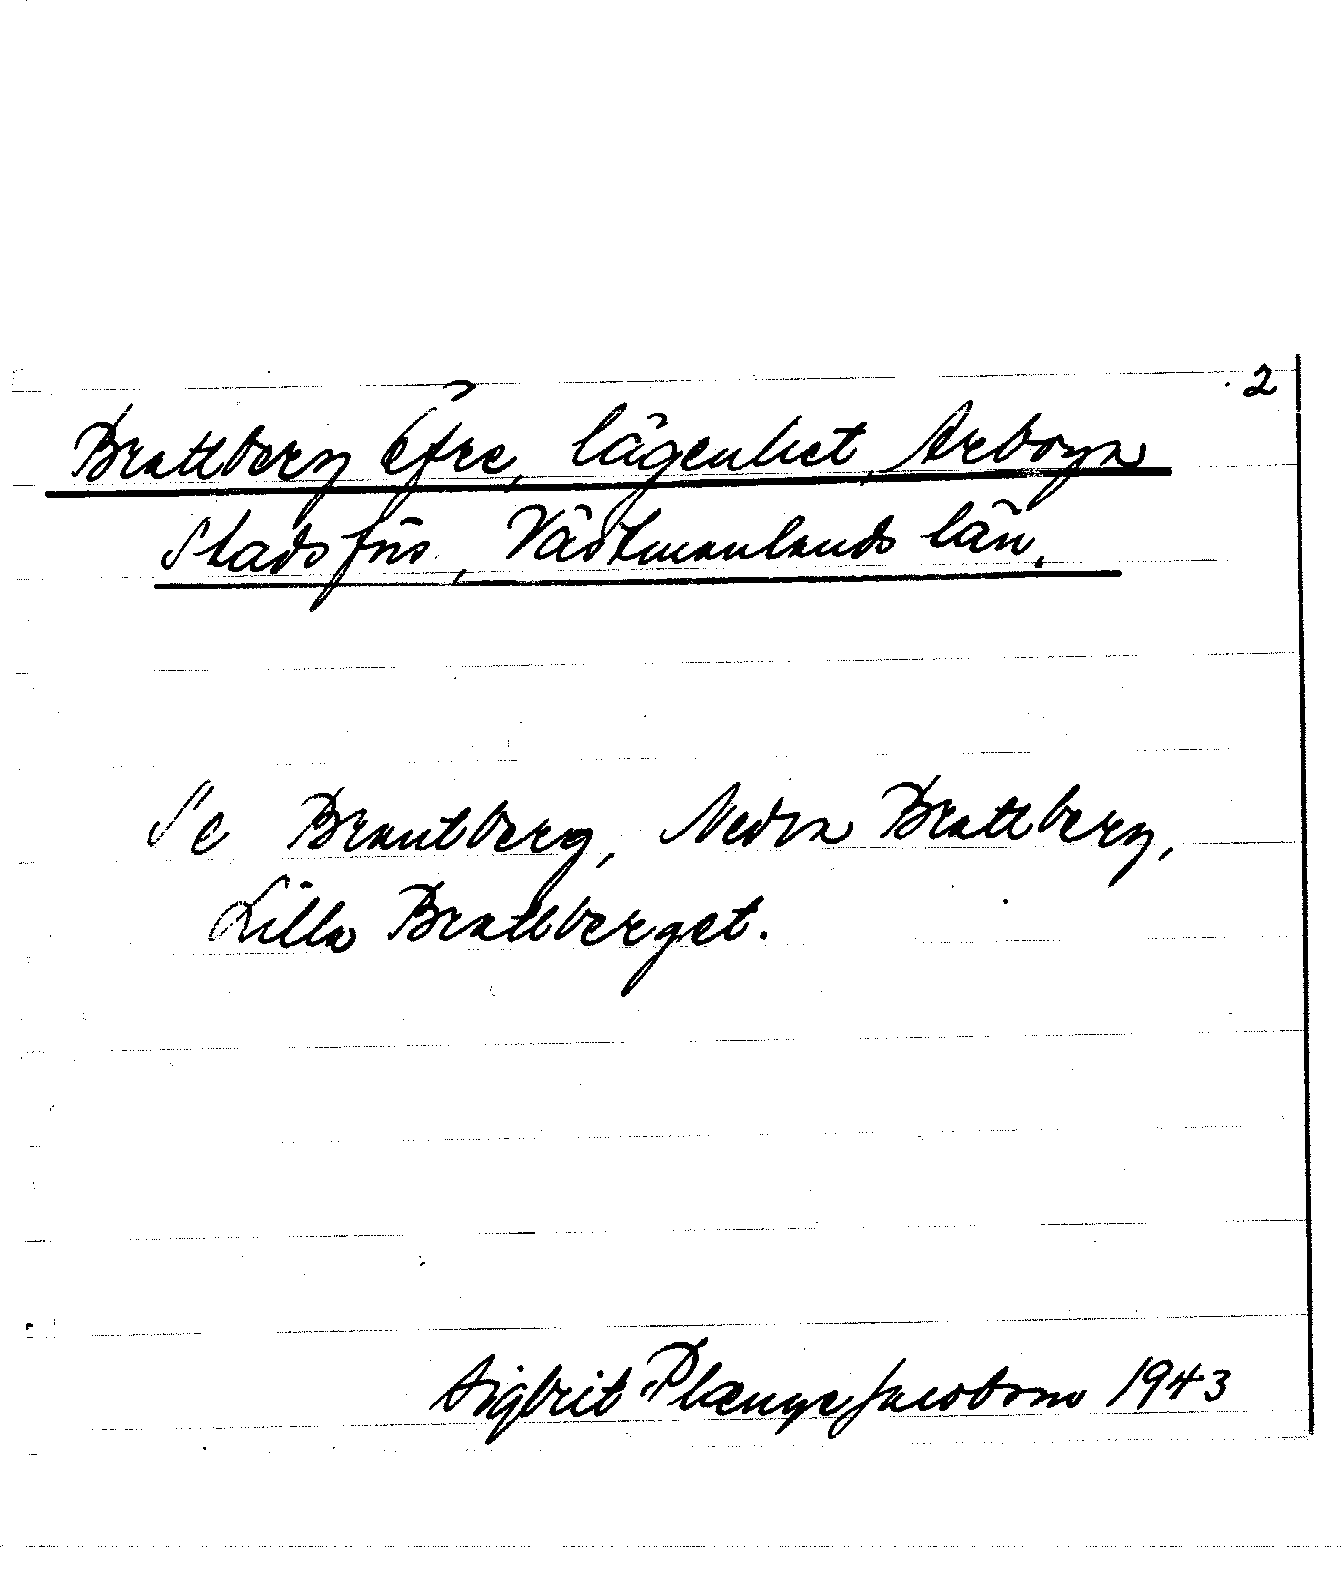 2
Brattberg Öfre, lägenhet, Arboga
Stadsförs, Västmanlands län.
Se Brantberg, Nedra Brattberg,
Lilla Brattberget.
Sigbrit Plænge Jacobson 1943